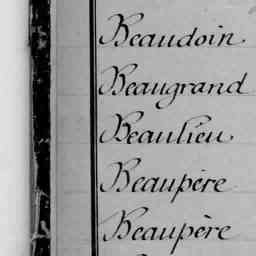 Beaudoin
Beaugrand
Beaulieu
Beaupère
Beaupère